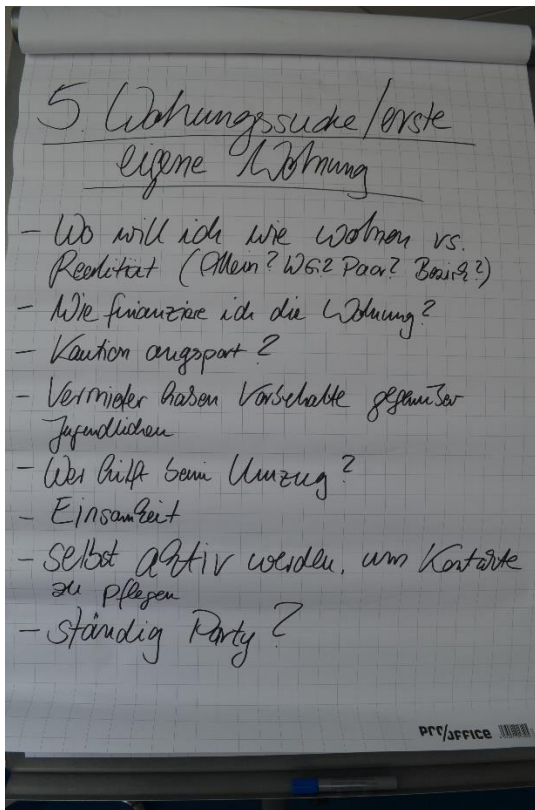 5. Wohungssuche/erste
eigene Wohnung
- Wo will ich wie wohnen vs.
Realität (Allein? WG? Paar? Bezirk?)
- Wie finanziere ich die Wohnung?
- Kaution angspart?
- Vermieter haben Vorbehalte gegenüber
Jugendlichen
- Wer hilft beim Umzug?
- Einsamkeit
- selbst aktiv werden, um Kontakte
zu pflegen
- ständig Party?
pro/office